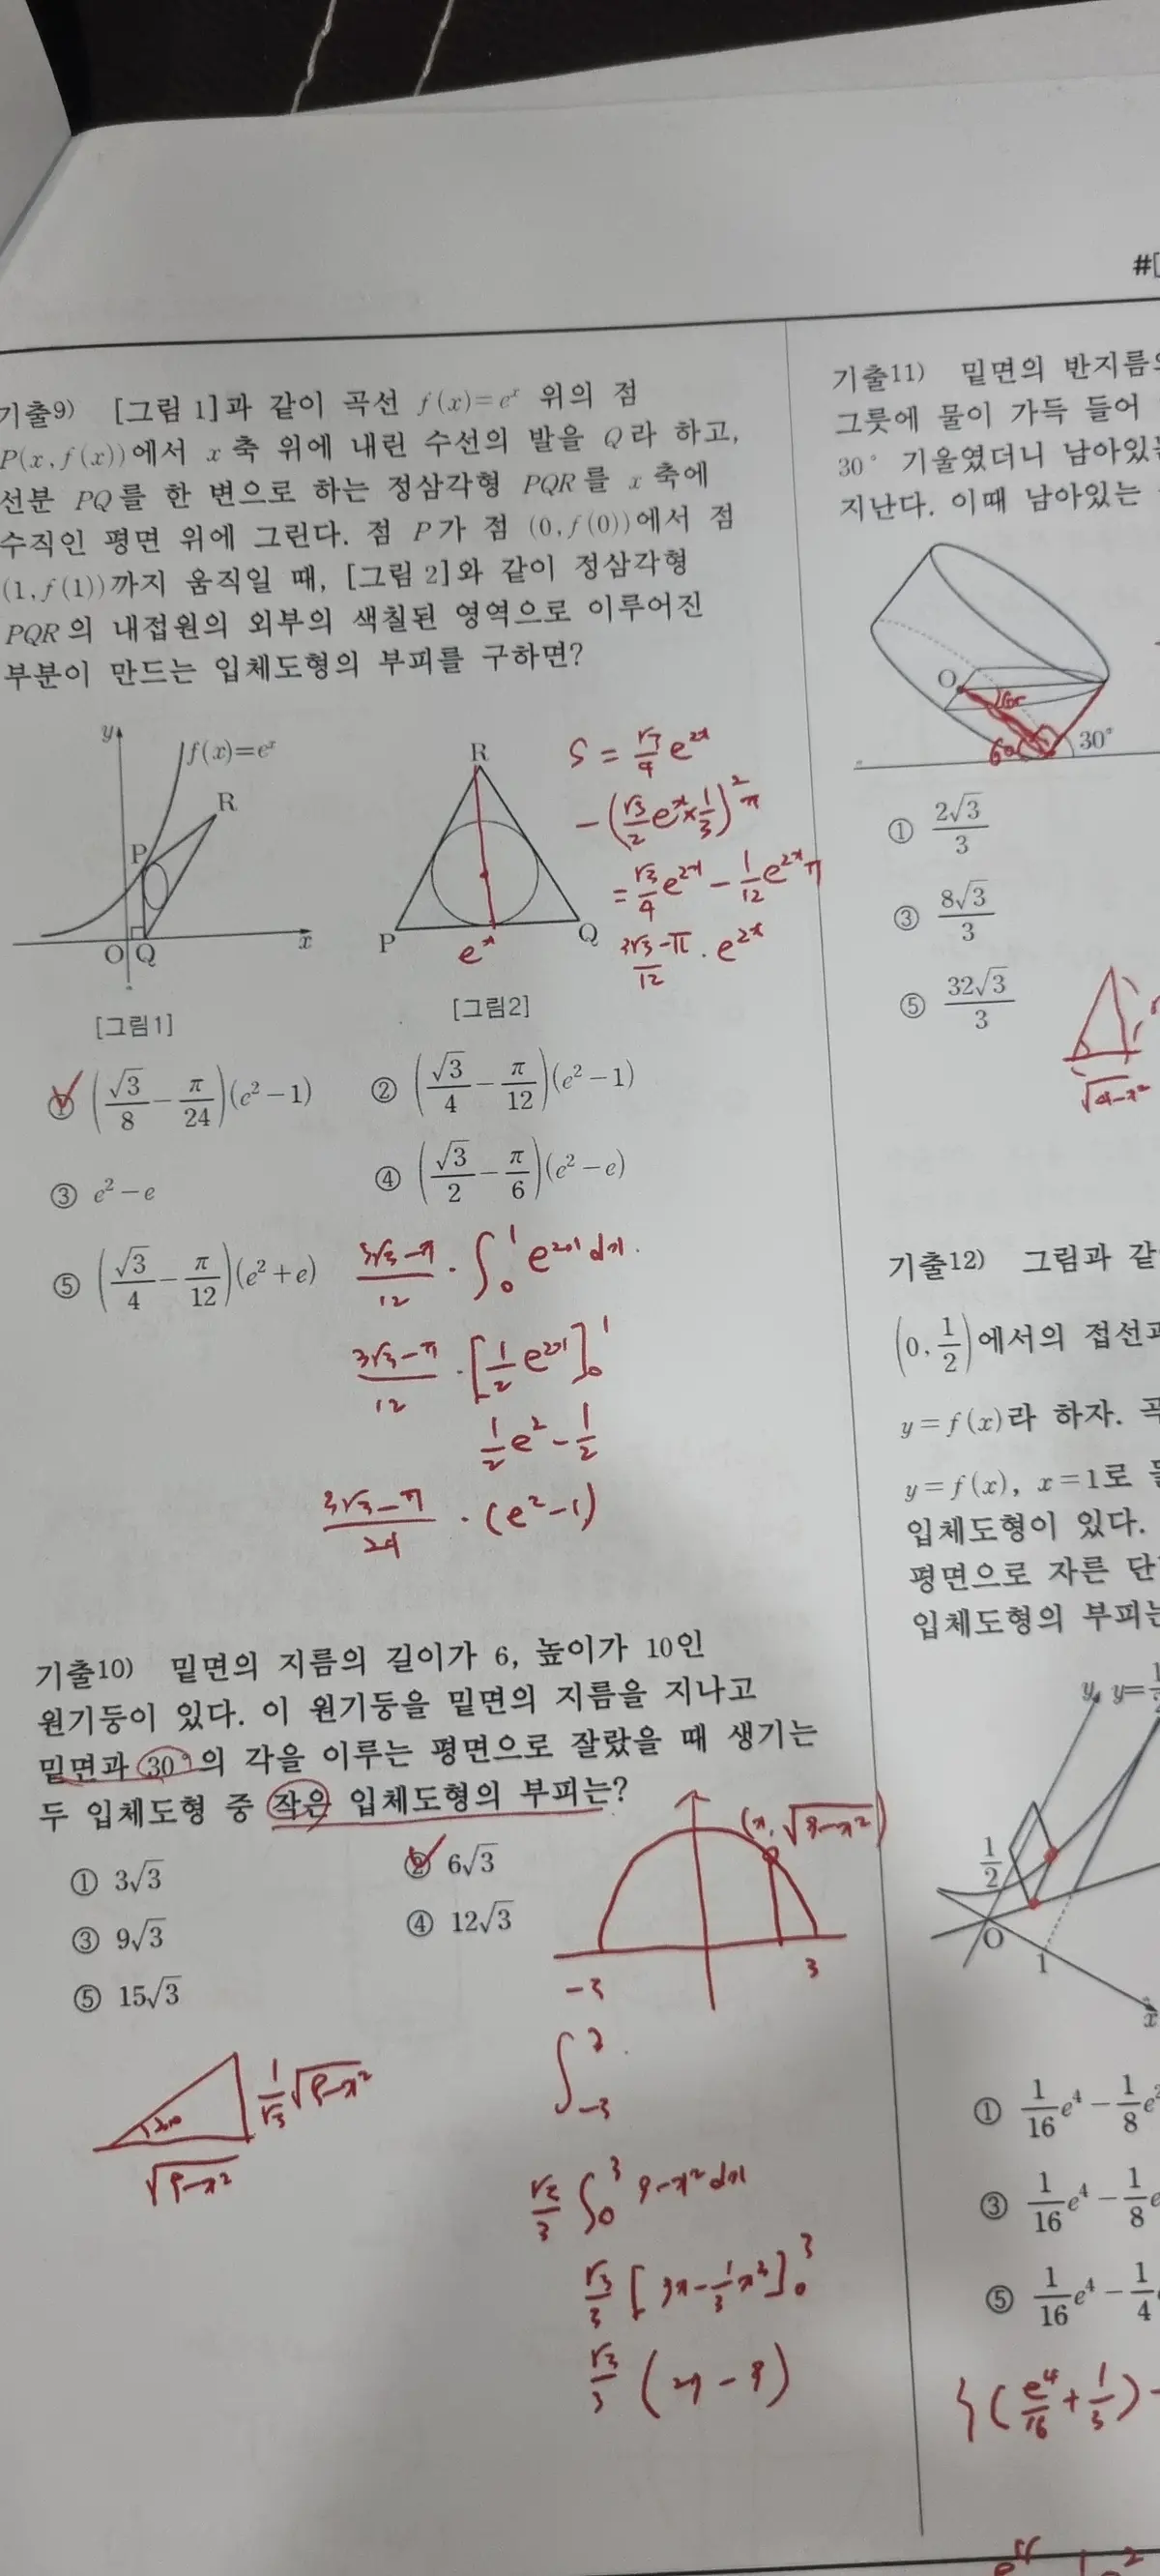 #
기출9) [그림 1]과 같이 곡선 f(x)=eˣ 위의 점
P(x, f(x))에서 x축 위에 내린 수선의 발을 Q라 하고,
선분 PQ를 한 변으로 하는 정삼각형 PQR를 x축에
수직인 평면 위에 그린다. 점 P가 점 (0, f(0))에서 점
(1, f(1))까지 움직일 때, [그림 2]와 같이 정삼각형
PQR의 내접원의 외부의 색칠된 영역으로 이루어진
부분이 만드는 입체도형의 부피를 구하면?
y
f(x)=eˣ
R
P
O Q
x
[그림1]
R
P
Q
eˣ
[그림2]
S = √3/4 e²ˣ
- (√3/2 eˣ × 1/3)² π
= √3/4 e²ˣ - 1/12 e²ˣ π
3√3-π/12 · e²ˣ
① (√3/8 - π/24)(e²-1)
② (√3/4 - π/12)(e²-1)
③ e²-e
④ (√3/2 - π/6)(e²-e)
⑤ (√3/4 - π/12)(e²+e)
3√3-π/12 · ∫₀¹ e²ˣ dx.
3√3-π/12 · [1/2 e²ˣ]₀¹
1/2 e² - 1/2
3√3-π/24 · (e²-1)
기출10) 밑면의 지름의 길이가 6, 높이가 10인
원기둥이 있다. 이 원기둥을 밑면의 지름을 지나고
밑면과 30°의 각을 이루는 평면으로 잘랐을 때 생기는
두 입체도형 중 작은 입체도형의 부피는?
① 3√3
② 6√3
③ 9√3
④ 12√3
⑤ 15√3
(x, √9-x²)
-3
3
30
1/√3 √9-x²
√9-x²
∫₋₃³
√3/3 ∫₀³ 9-x² dx
√3/3 [9x - 1/3 x³]₀³
√3/3 (27-9)
기출11) 밑면의 반지름의
그릇에 물이 가득 들어
30° 기울였더니 남아있는
지난다. 이때 남아있는
O
60
30°
① 2√3/3
③ 8√3/3
⑤ 32√3/3
√4-x²
기출12) 그림과 같
(0, 1/2)에서의 접선과
y=f(x)라 하자. 곡
y=f(x), x=1로 둘
입체도형이 있다.
평면으로 자른 단
입체도형의 부피는
y
y=
1/2
O
1
x
① 1/16 e⁴ - 1/8 e
③ 1/16 e⁴ - 1/8 e
⑤ 1/16 e⁴ - 1/4
(e⁴/16 + 1/3) -